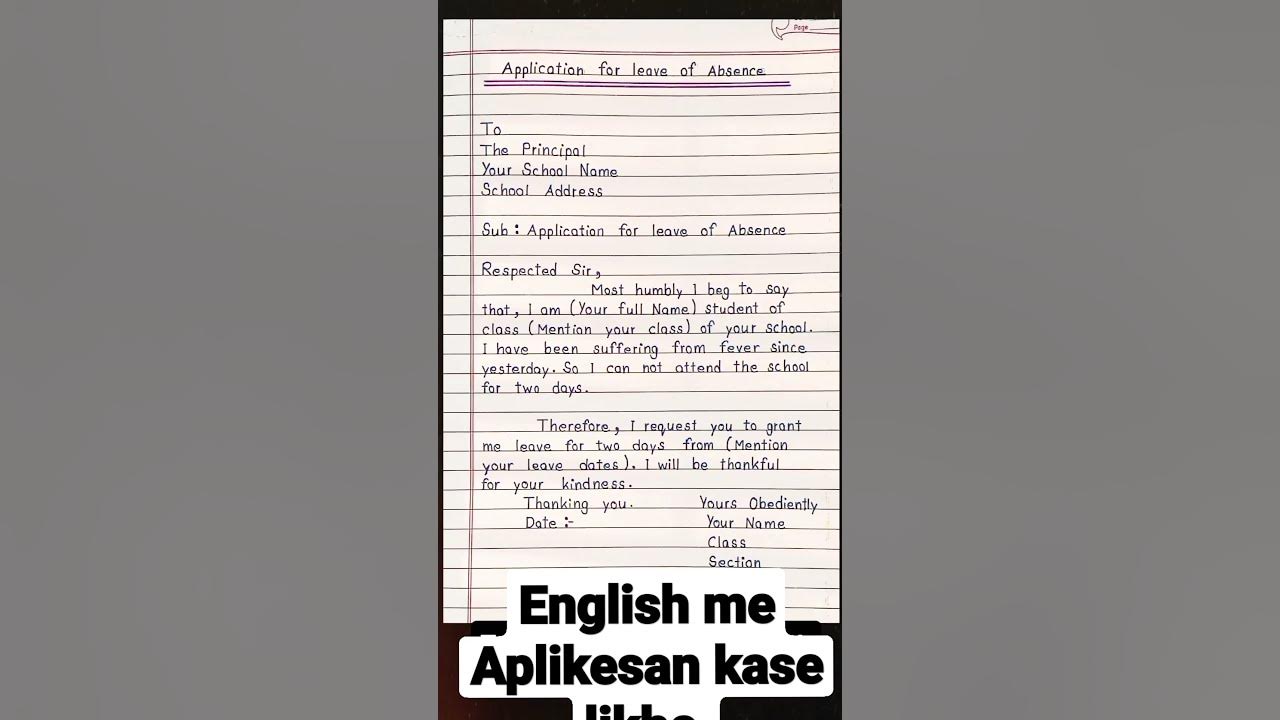 Page
Application for leave of Absence
To
The Principal
Your School Name
School Address
Sub : Application for leave of Absence
Respected Sir,
Most humbly I beg to say
that, I am (Your full Name) student of
class (Mention your class) of your school.
I have been suffering from fever since
yesterday. So I can not attend the school
for two days.
Therefore, I request you to grant
me leave for two days from (Mention
your leave dates). I will be thankful
for your kindness.
Thanking you. Yours Obediently
Date :- Your Name
Class
Section
English me
Aplikesan kase